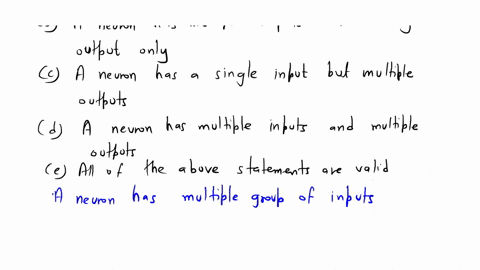 A neuron has
output only
(c) A neuron has a single input but multiple
outputs
(d) A neuron has multiple inputs and multiple
outputs
(e) All of the above statements are valid
A neuron has multiple group of inputs